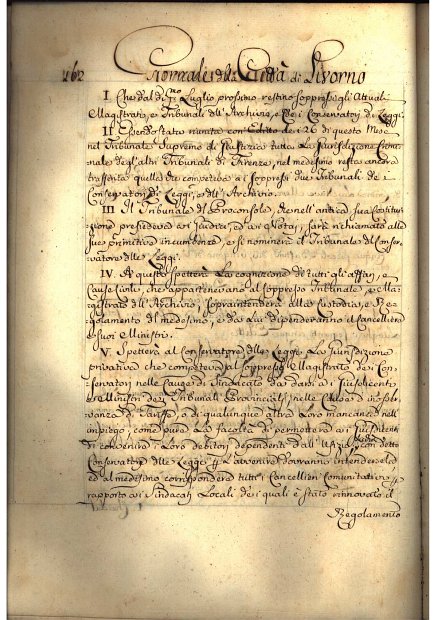 162 Giornale della Città di Livorno
I. Che dal dì p.mo Luglio prossimo restino soppressi gli Attuali
Magistrato, e Tribunali dell'Archivio, e dei Conservatori di Leggi.
II. Essendo stata riunita con Editto de i 26 di questo Mese
nel Tribunale Supremo di Giustizia tutta La Giurisdizione Crimi-
nale degl'altri Tribunali di Firenze, nel medesimo resta ancora
trasfusa quella che competeva a i soppressi due Tribunali de i
Conservatori di Leggi, e dell'Archivio.
III. Il Tribunale del Proconsole, che nell'antica sua Costitu-
zione presedeva a i Giudici, ed a i Notaj, sarà richiamato alle
sue primitive incumbenze, e si nominerà il Tribunale del Conser-
vatore delle Leggi.
IV. A questo spetterà La cognizione de tutti gli affari, e
Cause Civili, che appartenevano al soppresso Tribunale, e Ma-
gistrato dell'Archivio, soprintenderà alla Custodia, e Re-
golamento del medesimo, e da Lui dipenderanno il Cancelliere
e suoi Ministri.
V. Spetterà al Conservatore delle Leggi La Giurisdizione
privativa che competeva al soppresso Magistrato de i Con-
servatori nelle Cause di Sindacato da darsi a i Giusdicenti
e Ministri dei Tribunali Provinciali, nelle Cause d'inosser-
vanza di Tariffa, o di qualunque altra Loro mancanza nell'
impiego, come pure La facoltà di permettere a i Giusdicenti
di convenire i Loro debitori dependentemente dall'Ufizio; con detto
Conservatore delle Leggi p. L'avvenire dovranno intendersela
ed al medesimo corrispondere tutti i Cancellieri Comunitativi
rapporto a i Sindacati Locali de i quali è stato rinnovato il
Regolamento